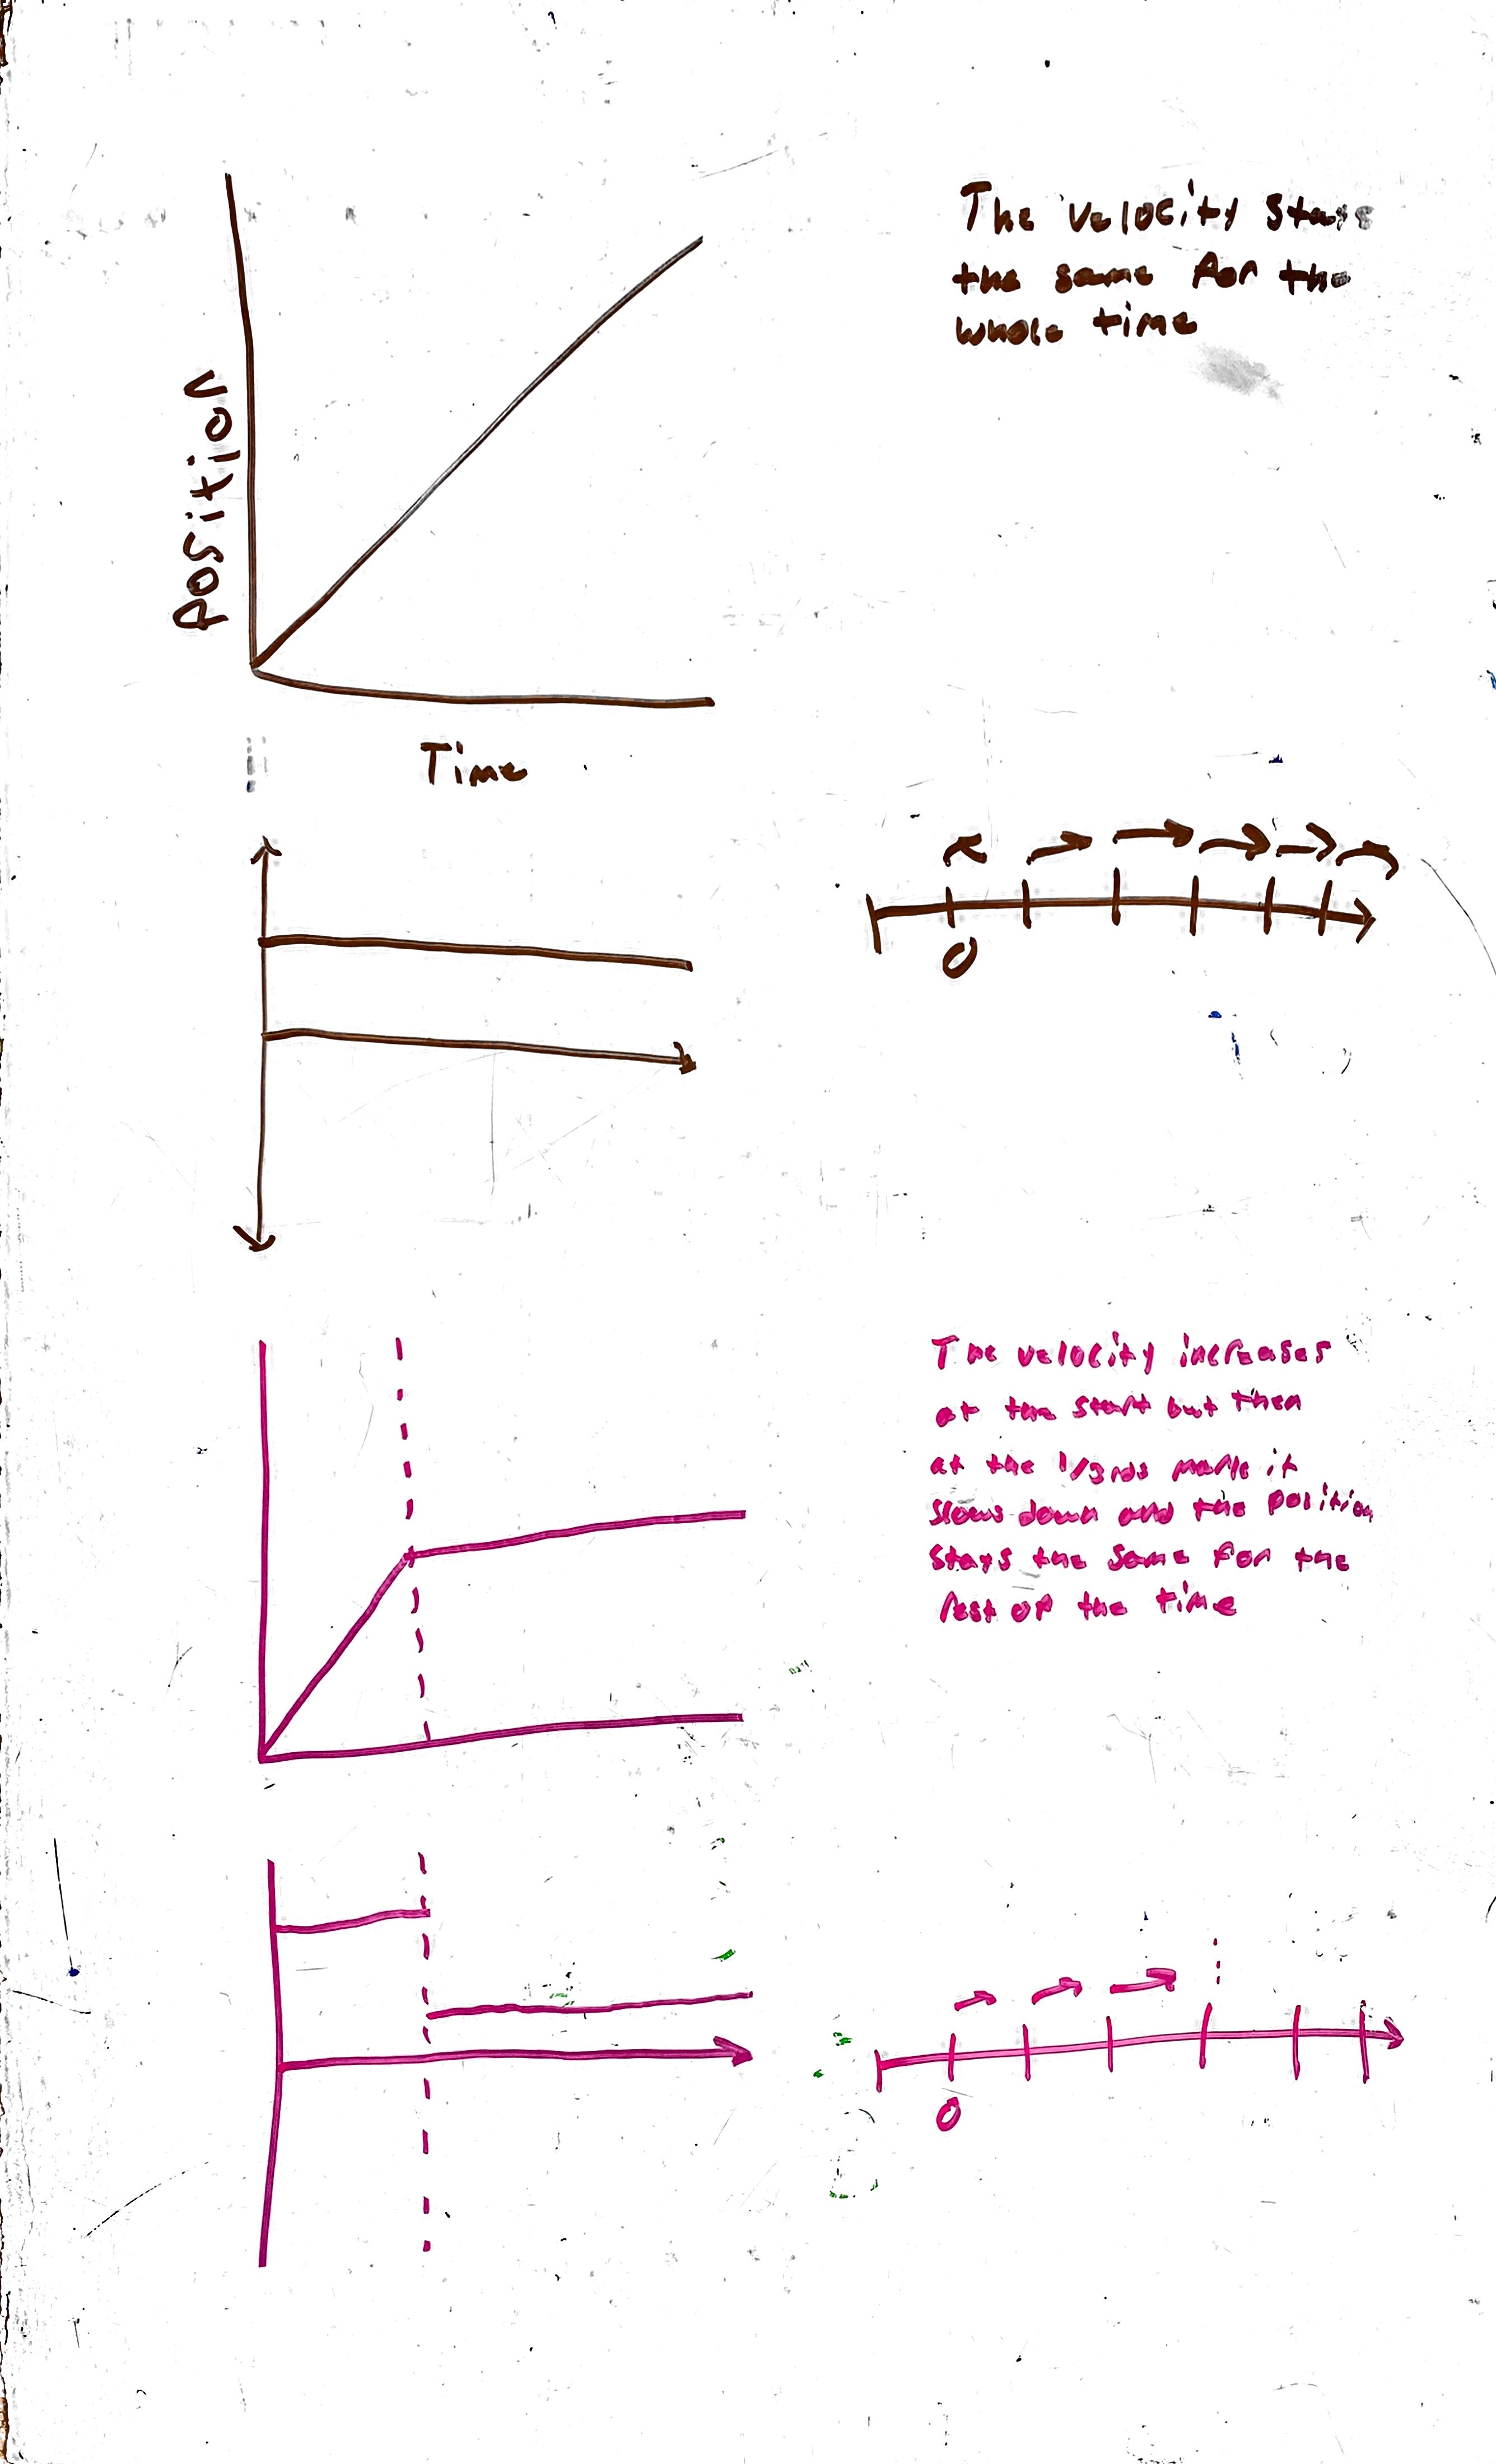 The velocity stays
the same for the
whole time
Position
Time
0
The velocity increases
at the start but then
at the 1/3rds mark it
slows down and the position
stays the same for the
rest of the time
0